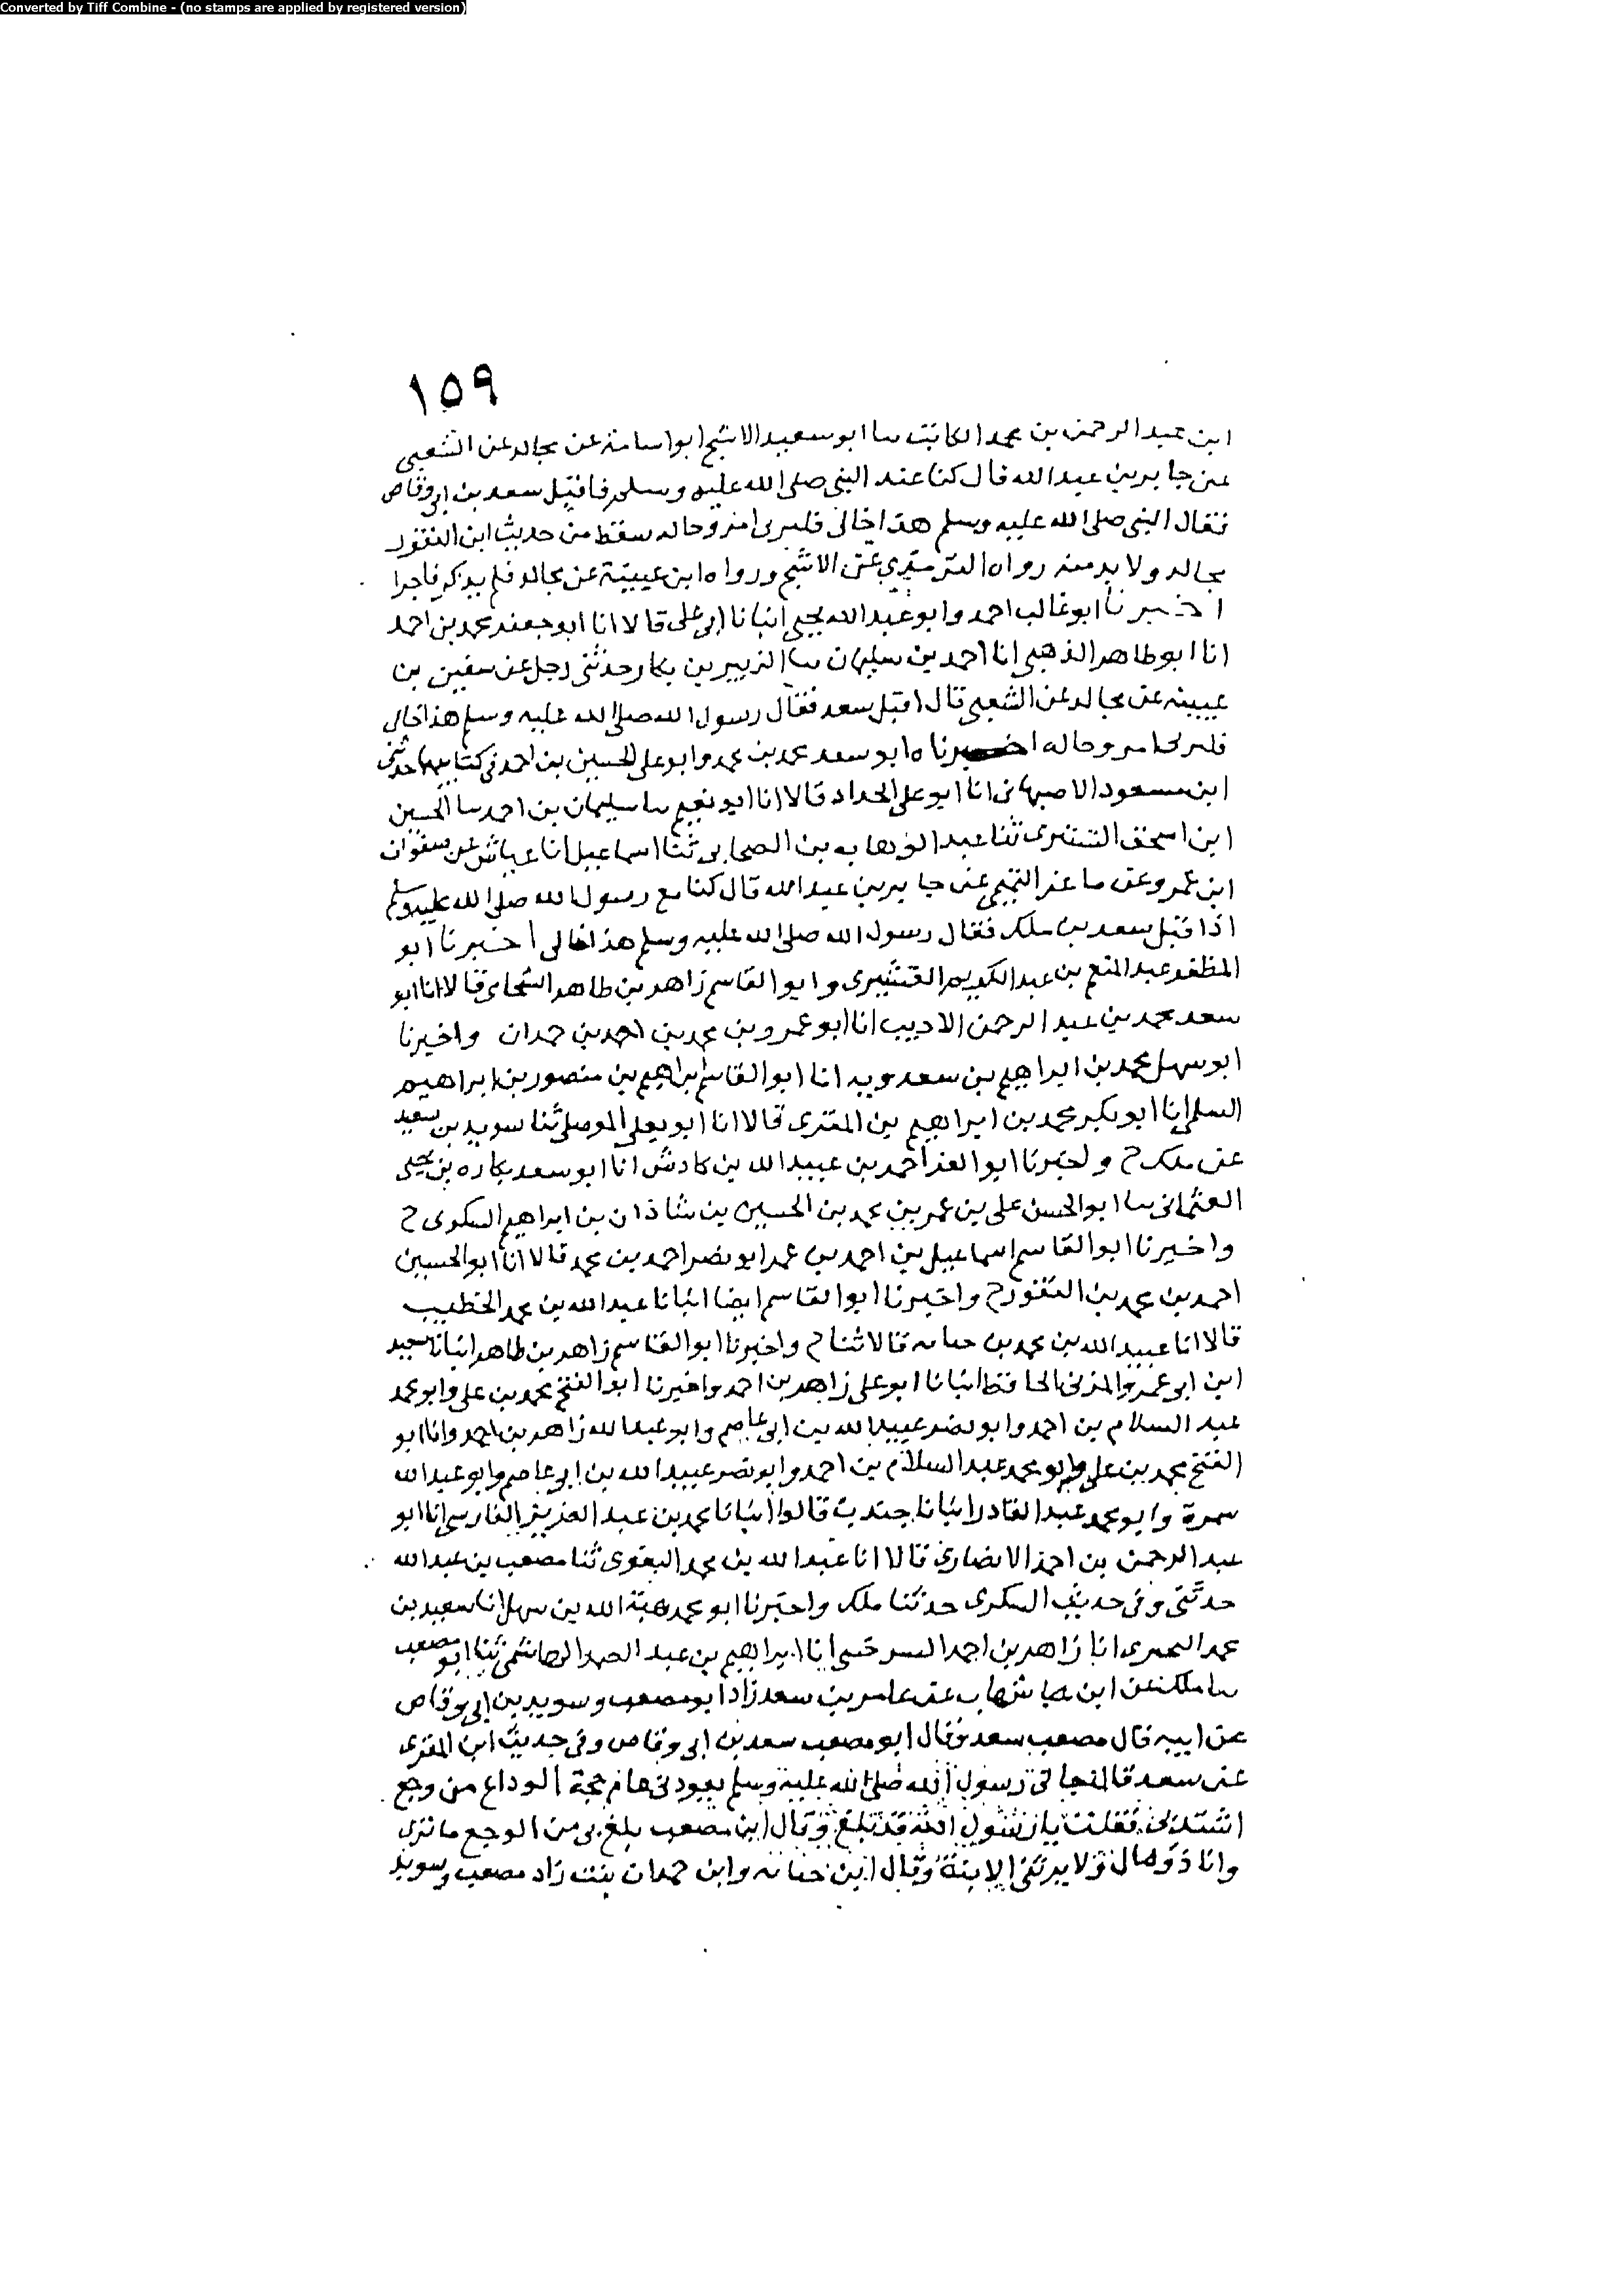 Converted by Tiff Combine - (no stamps are applied by registered version)
١٥٩
ابن عبد الرحمن بن محمد الكاتب سا ابو سعيد الاشج ابو اسامة عن مجالد عن الشعبى
عن جابر بن عبد الله قال كنا عند النبى صلى الله عليه وسلم فاقبل سعد بن ابى وقاص
فقال النبى صلى الله عليه وسلم هذا خالى فليرى امرؤ خاله سقط من حديث ابن النقور
مجالد ولا بد منه رواه الترمذي عن الاشج ورواه ابن عيينة عن مجالد فلم يذكر جابرا
اخبرنا ابو غالب احمد وابو عبد الله يحيى انبانا ابى على قالا انا ابو جعفر محمد بن احمد
انا ابو طاهر الذهبى انا احمد بن سليمان سا الزبير بن بكار وحدثنى رجل عن سفين بن
عيينه عن مجالد عن الشعبى قال اقبل سعد فقال رسول الله صلى الله عليه وسلم هذا خالى
امرو خاله اخبرنا ه ابو سعد محمد بن محمد وابو على الحسين بن احمد فى كتابيهما حدثنى
ابن مسعود الاصبهانى انا ابو على الحداد قالا انا ابو نعيم سا سليمان بن احمد سا الحسين
ابن اسحق التسترى ثنا عبد الوهاب بن الضحا ثنا اسماعيل انا عياش عن صفوان
ابن عمرو عن ماعز التميمى عن جابر بن عبد الله قال كنا مع رسول الله صلى الله عليه وسلم
اذا قبل سعد بن ملك فقال رسول الله صلى الله عليه وسلم هذا خالى اخبرنا ابو
المظفر عبد المنعم بن عبد الكريم القشيرى وابو القاسم زاهر بن طاهر الشحامى قالا انا ابو
سعد محمد بن عبد الرحمن الاديب انا ابو عمرو بن محمد بن احمد بن حمدان واخبرنا
ابو سهل محمد بن ابراهيم بن سعدويه انا ابو القاسم ابراهيم بن منصور بن ابراهيم
السلمى انا ابو بكر محمد بن ابراهيم بن المقرى قالا انا ابو يعلى الموصلى ثنا سويد بن سعيد
عن ملك ح واخبرنا ابو العز احمد بن عبيد الله بن كادش انا ابو سعد بكاره بن يحيى
العثمانى سا ابو الحسن على بن عمر بن محمد بن الحسين بن شاذان بن ابراهيم السكرى ح
واخبرنا ابو القاسم اسماعيل بن احمد بن عمر ابو نصر احمد بن محمد قالا انا ابو الحسين
احمد بن محمد بن النقور ح واخبرنا ابو القاسم ايضا انبانا عبد الله بن محمد الخطيب
قالا انا عبيد الله بن محمد بن حبابه قالا ثنا ح واخبرنا ابو القاسم زاهر بن طاهر انبانا سعيد
ابن ابو عمرو المزنى الحافظ انبانا ابو على زاهر بن احمد واخبرنا ابو الفتح محمد بن على وابو محمد
عبد السلام بن احمد وابو نصر عبيد الله بن ابى عاصم وابو عبد الله زاهر بن احمد وانا ابو
الفتح محمد بن على وابو محمد عبد السلام بن احمد وابو نصر عبيد الله بن ابو عاصم وابو عبد الله
سمرة وابو محمد عبد القادر انبانا قالوا انبانا محمد بن عبد العزيز الفارسى انا ابو
عبد الرحمن بن احمد الانصارى قالا انا عبد الله بن محمد البغوى ثنا مصعب بن عبد الله
حدثنى وفى حديث السكرى حدثنا ملك واخبرنا ابو محمد هبة الله بن سهل انا سعيد بن
محمد البحيرى انا زاهر بن احمد السرخسى انا ابراهيم بن عبد الصمد الهاشمى ثنا ابو مصعب
سا ملك عن ابن شهاب عن عامر بن سعد زاد ابو مصعب وسويد بن ابى وقاص
عن ابيه قال مصعب سعد وقال ابو مصعب سعد بن ابى وقاص وفى حديث ابن المقرى
عن سعد قال جانى رسول الله صلى الله عليه وسلم يعودنى عام حجة الوداع من وجع
اشتد بى فقلت يا رسول الله قد بلغ وقال ابن مصعب بلغ بى من الوجع ما ترى
وانا ذو مال ولا يرثنى الا ابنة وقال ابن حبابه وابن حمدان بنت زاد مصعب وسويد